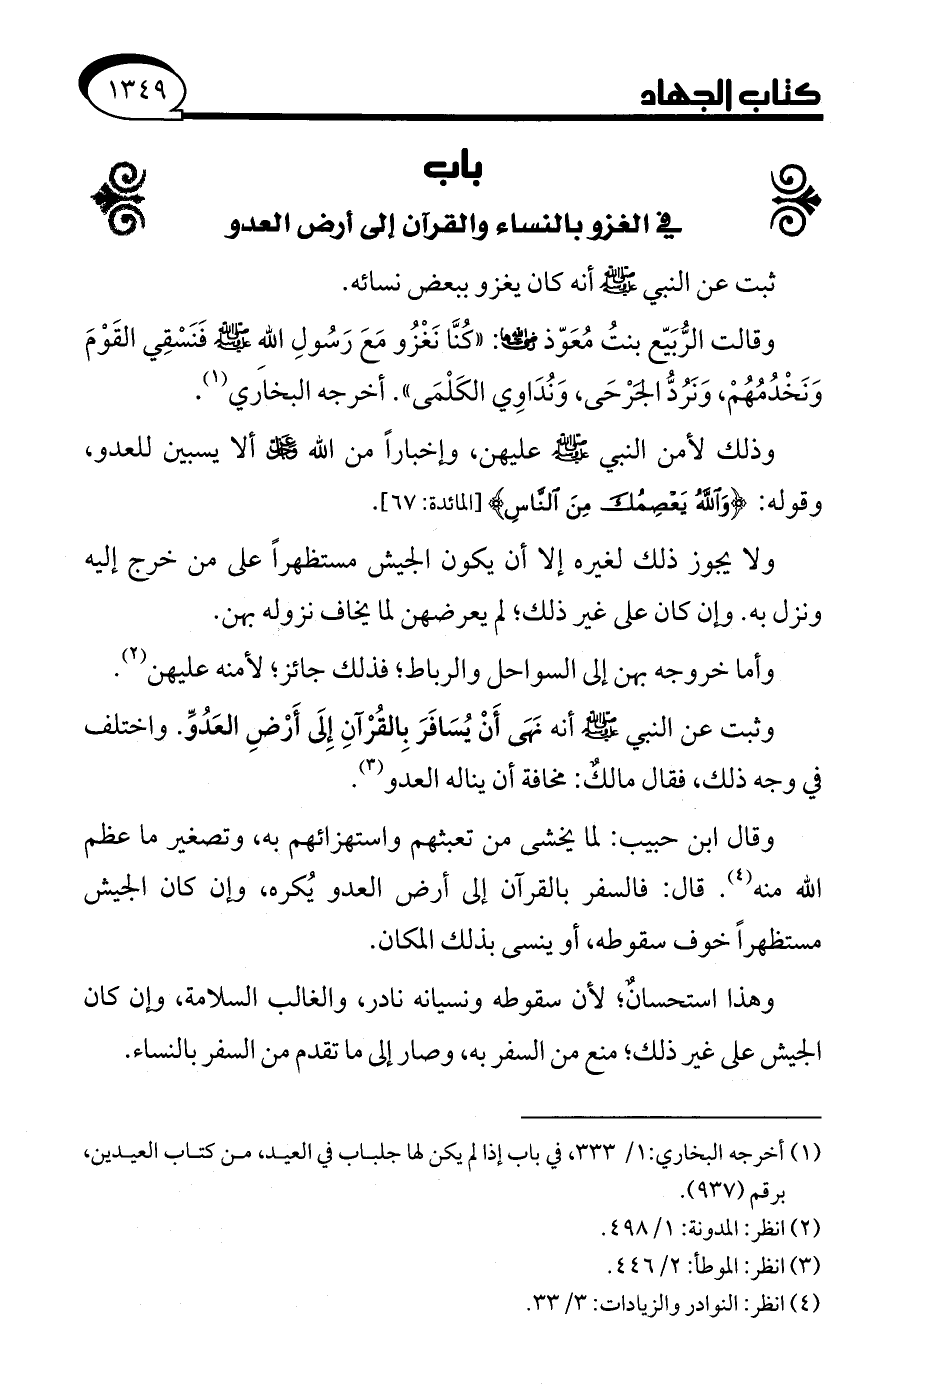 كتاب الجهاد
١٣٤٩
باب
في الغزو بالنساء والقرآن إلى أرض العدو
ثبت عن النبي ﷺ أنه كان يغزو ببعض نسائه.
وقالت الرُّبَيِّع بنتُ مُعَوّذ رضي الله عنها: «كُنَّا نَغْزُو مَعَ رَسُولِ اللهِ ﷺ فَنَسْقِي القَوْمَ
وَنَخْدُمُهُمْ، وَنَرُدُّ الجَرْحَى، وَنُدَاوِي الكَلْمَى». أخرجه البخاري(١).
وذلك لأمن النبي ﷺ عليهن، وإخباراً من الله عز وجل ألا يسبين للعدو،
وقوله: ﴿وَٱللَّهُ يَعْصِمُكَ مِنَ ٱلنَّاسِ﴾ [المائدة: ٦٧].
ولا يجوز ذلك لغيره إلا أن يكون الجيش مستظهراً على من خرج إليه
ونزل به. وإن كان على غير ذلك؛ لم يعرضهن لما يخاف نزوله بهن.
وأما خروجه بهن إلى السواحل والرباط؛ فذلك جائز؛ لأمنه عليهن(٢).
وثبت عن النبي ﷺ أنه نَهَى أَنْ يُسَافَرَ بِالقُرْآنِ إِلَى أَرْضِ العَدُوِّ. واختلف
في وجه ذلك، فقال مالكٌ: مخافة أن يناله العدو(٣).
وقال ابن حبيب: لما يخشى من تعبثهم واستهزائهم به، وتصغير ما عظم
الله منه(٤). قال: فالسفر بالقرآن إلى أرض العدو يُكره، وإن كان الجيش
مستظهراً خوف سقوطه، أو ينسى بذلك المكان.
وهذا استحسانٌ؛ لأن سقوطه ونسيانه نادر، والغالب السلامة، وإن كان
الجيش على غير ذلك؛ منع من السفر به، وصار إلى ما تقدم من السفر بالنساء.
(١) أخرجه البخاري:١/ ٣٣٣، في باب إذا لم يكن لها جلباب في العيد، من كتاب العيدين،
برقم (٩٣٧).
(٢) انظر: المدونة: ١/ ٤٩٨.
(٣) انظر: الموطأ: ٢/ ٤٤٦.
(٤) انظر: النوادر والزيادات: ٣/ ٣٣.